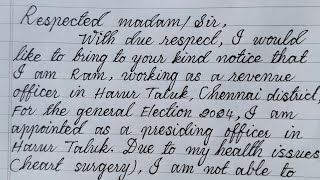 Respected madam/Sir,
With due respect, I would
like to bring to your kind notice that
I am Ram, working as a revenue
officer in Harur Taluk, Chennai district,
For the general Election 2024, I am
appointed as a presiding officer in
Harur Taluk. Due to my health issues
(heart surgery), I am not able to